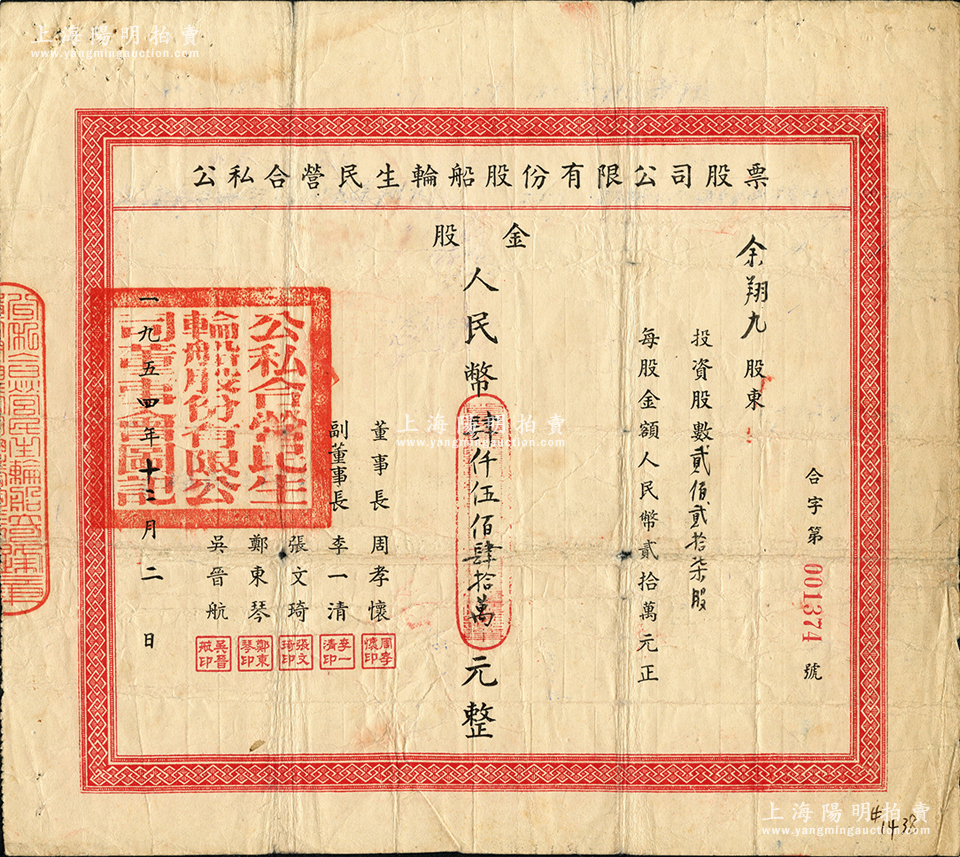 上海陽明拍賣
www.yangmingauction.com
公私合營民生輪船股份有限公司股票
合字第001374號
余翔九股東
投資股數貳佰貳拾柒股
每股金額人民幣貳拾萬元正
股金
人民幣肆仟伍佰肆拾萬元整
董事長 周孝懷
副董事長 李一清
張文琦
鄭東琴
吳晉航
周孝懷印
李一清印
張文琦印
鄭東琴印
吳晉航印
一九五四年十二月二日
公私合營民生輪船股份有限公司董事會圖記
上海陽明拍賣
www.yangmingauction.com
上海陽明拍賣
www.yangmingauction.com